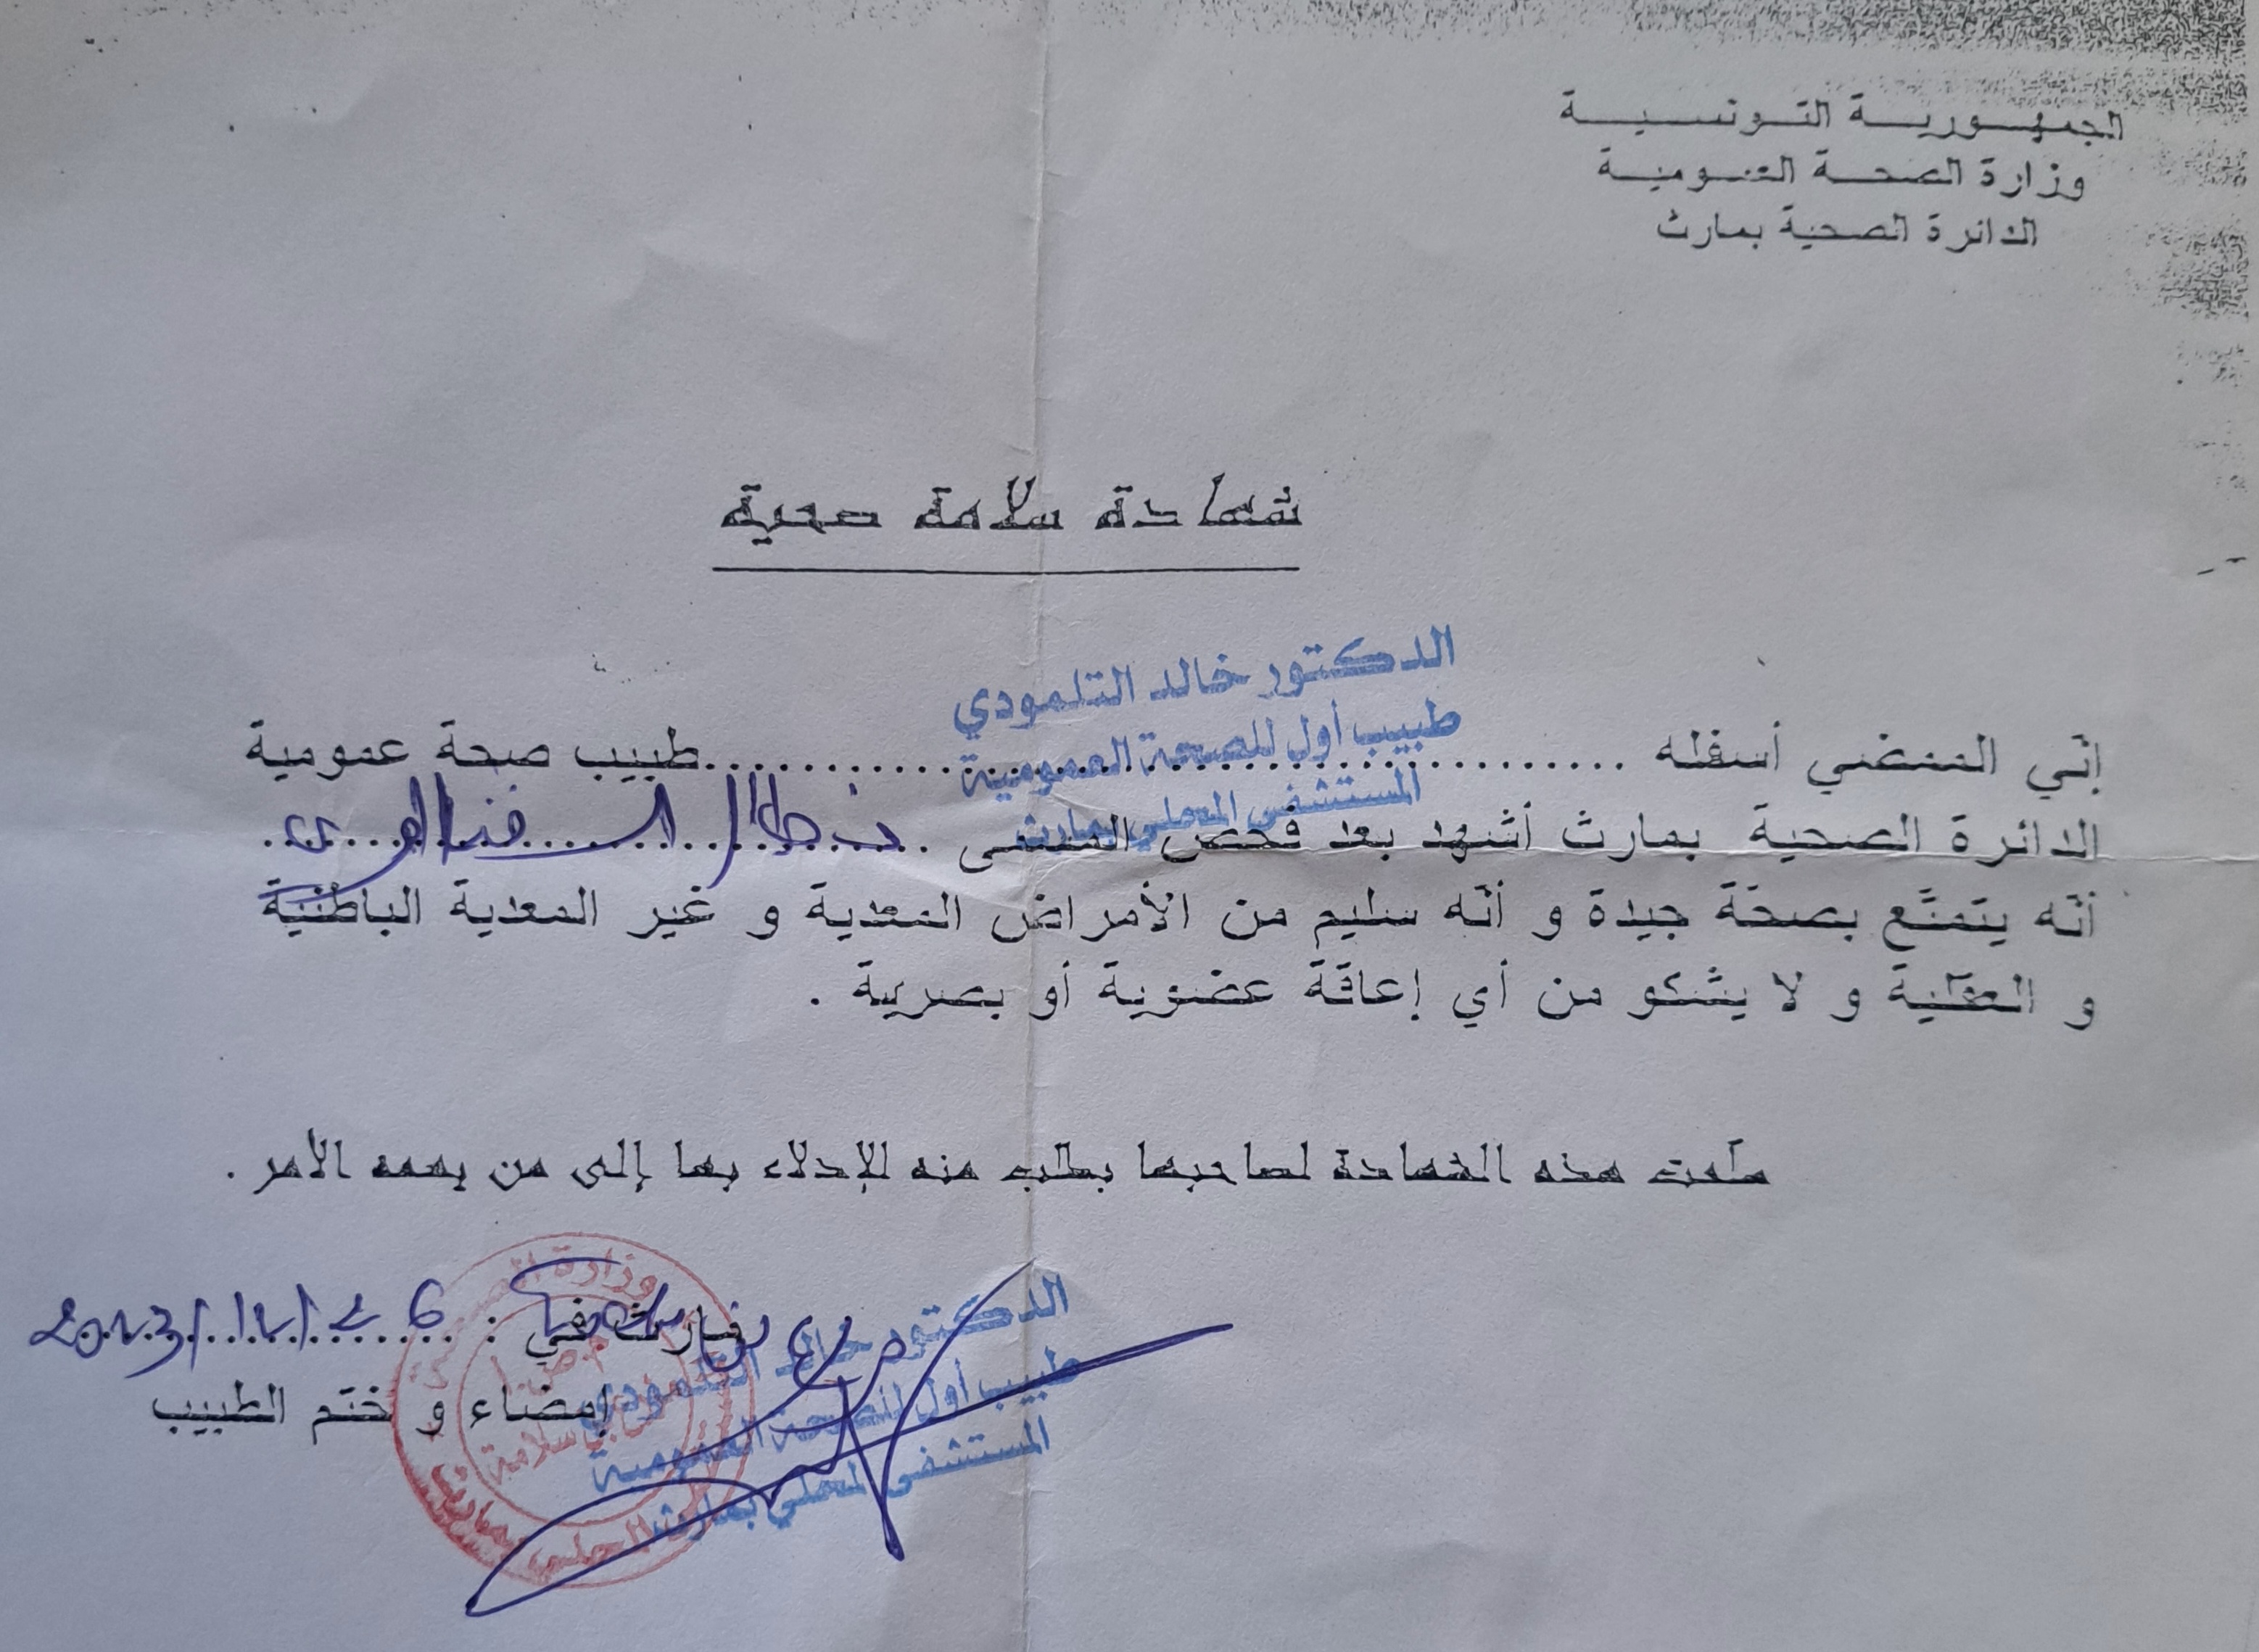 الجمهورية التونسية
وزارة الصحة العمومية
الدائرة الصحية بمارث
شهادة سلامة صحية
الدكتور خالد التلمودي
طبيب أول للصحة العمومية
المستشفى المحلي بمارث
إنّي الممضي أسفله ........................................ طبيب صحة عمومية
الدائرة الصحية بمارث أشهد بعد فحص المسمى
أنّه يتمتّع بصحّة جيدة و أنّه سليم من الأمراض المعدية و غير المعدية الباطنية
و العقلية و لا يشكو من أي إعاقة عضوية أو بصرية .
سلّمت هذه الشهادة لصاحبها بطلب منه للإدلاء بها إلى من يهمه الأمر .
مارث في :
إمضاء و ختم الطبيب
الدكتور خالد التلمودي
طبيب أول للصحة العمومية
المستشفى المحلي بمارث
وزارة